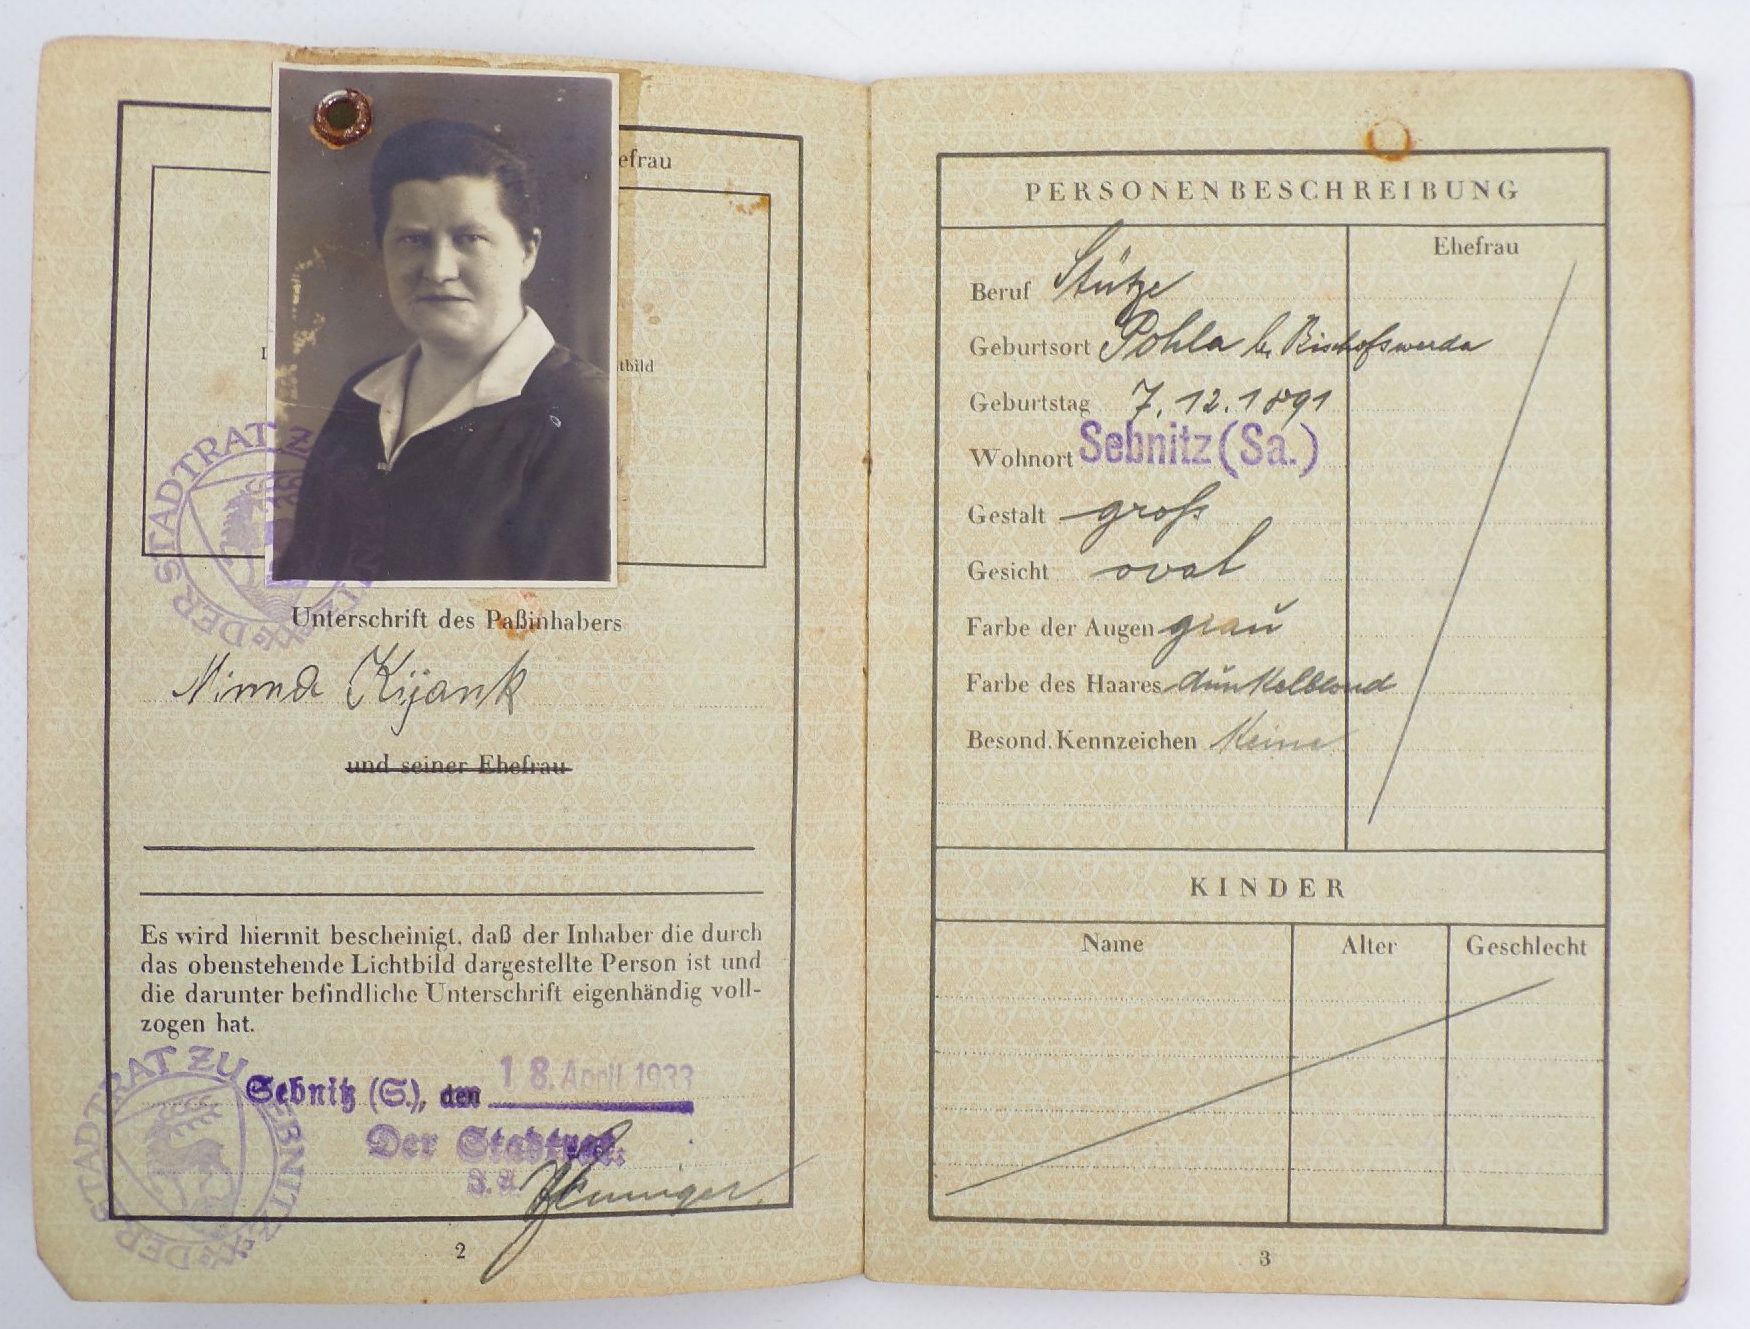 efrau
tbild
DER STADTRAT ZU
Unterschrift des Paßinhabers
Minna Kijank
und seiner Ehefrau
Es wird hiermit bescheinigt, daß der Inhaber die durch
das obenstehende Lichtbild dargestellte Person ist und
die darunter befindliche Unterschrift eigenhändig voll-
zogen hat.
DER STADTRAT ZU SEBNITZ
Sebnitz (S.), den 18. April 1933
Der Stadtrat:
2
PERSONENBESCHREIBUNG
Ehefrau
Beruf Stütze
Geburtsort Pohla b. Bischofswerda
Geburtstag 7.12.1891
Wohnort Sebnitz (Sa.)
Gestalt groß
Gesicht oval
Farbe der Augen grau
Farbe des Haares dunkelblond
Besond. Kennzeichen Keine
KINDER
Name Alter Geschlecht
3